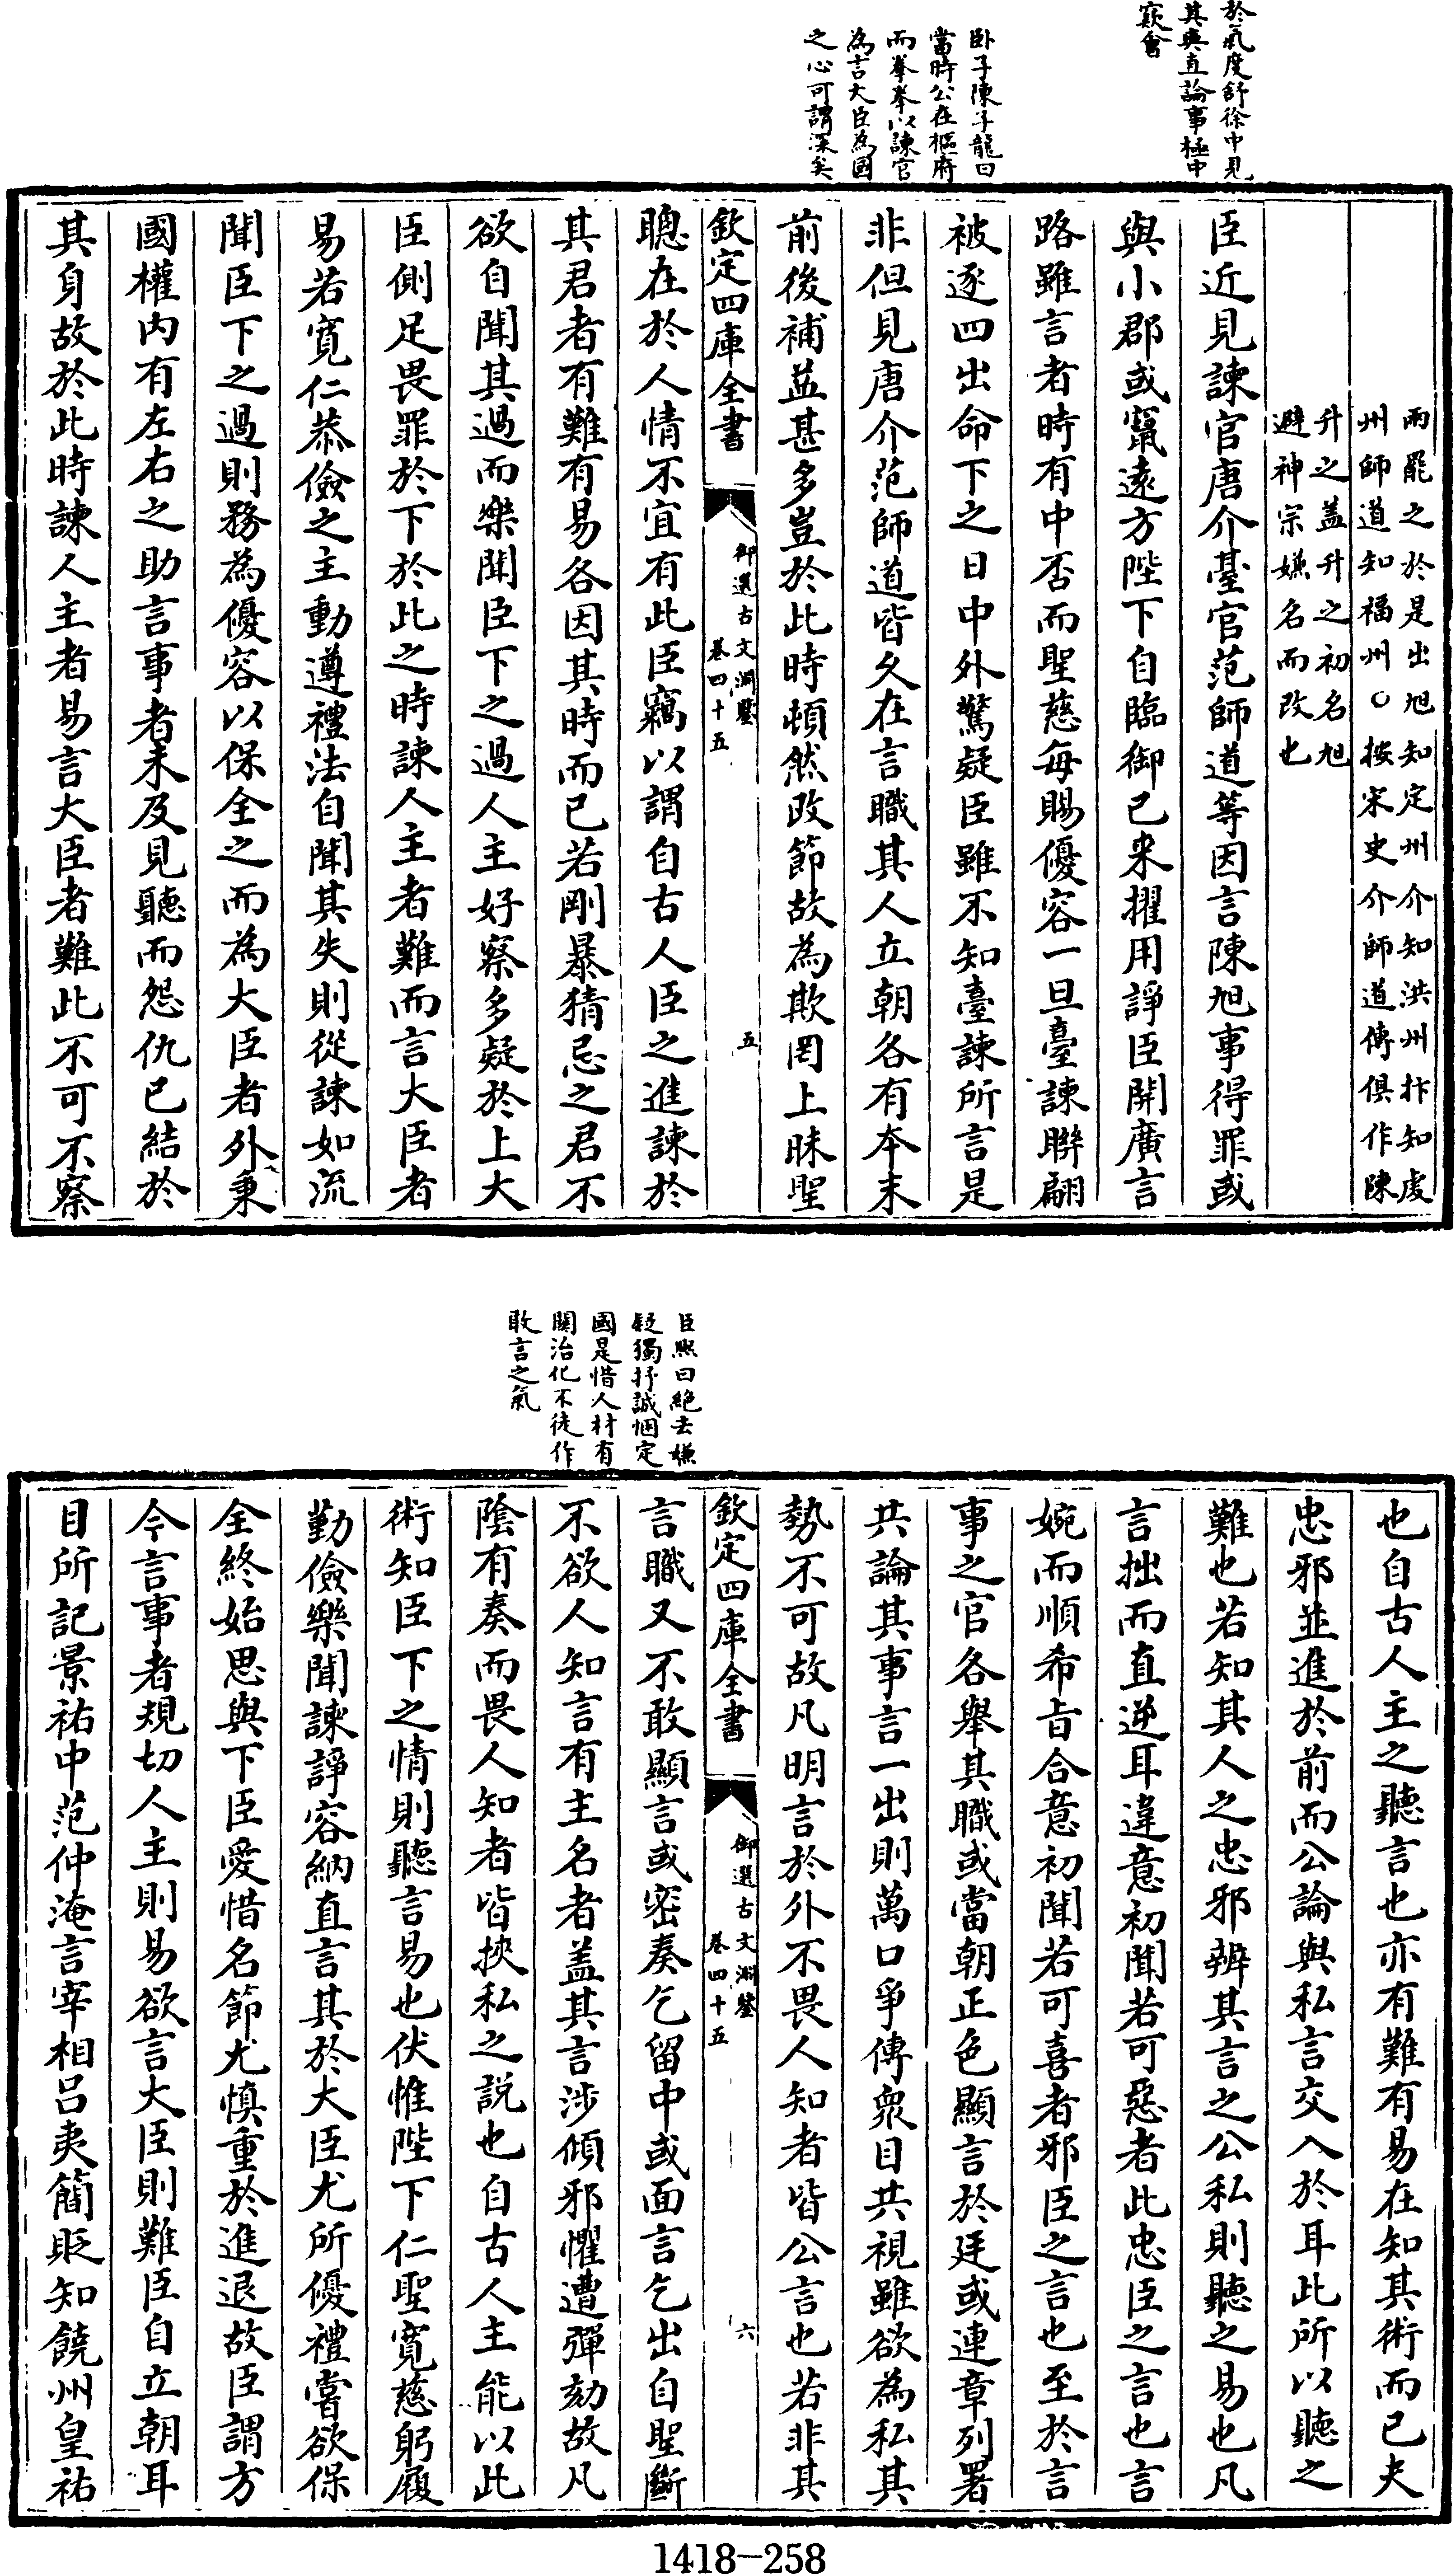 於氣度舒徐中見
其輿直論事極中
窽會
卧子陳子龍曰
當時公在樞府
而拳拳以諫官
為言大臣為國
之心可謂深矣
兩罷之於是出旭知定州介知洪州抃知虔
州師道知福州○按宋史介師道傳俱作陳
升之盖升之初名旭
避神宗嫌名而改也
臣近見諫官唐介臺官范師道等因言陳旭事得罪或
與小郡或竄逺方陛下自臨御已來擢用諍臣開廣言
路雖言者時有中否而聖慈每賜優容一旦臺諫聨翩
被逐四出命下之日中外驚疑臣雖不知臺諫所言是
非但見唐介范師道皆久在言職其人立朝各有本末
前後補益甚多豈於此時頓然改節故為欺罔上昧聖
欽定四庫全書
御選古文淵鑒
卷四十五
五
聰在於人情不宜有此臣竊以謂自古人臣之進諫於
其君者有難有易各因其時而已若剛暴猜忌之君不
欲自聞其過而樂聞臣下之過人主好察多疑於上大
臣側足畏罪於下於此之時諫人主者難而言大臣者
易若寛仁恭儉之主動遵禮法自聞其失則從諫如流
聞臣下之過則務為優容以保全之而為大臣者外秉
國權内有左右之助言事者未及見聽而怨仇已結於
其身故於此時諫人主者易言大臣者難此不可不察
臣熙曰絶去嫌
疑獨抒誠悃定
國是惜人材有
闗治化不徒作
敢言之氣
也自古人主之聽言也亦有難有易在知其術而已夫
忠邪並進於前而公論與私言交入於耳此所以聽之
難也若知其人之忠邪辨其言之公私則聽之易也凡
言拙而直逆耳違意初聞若可惡者此忠臣之言也言
婉而順希旨合意初聞若可喜者邪臣之言也至於言
事之官各舉其職或當朝正色顯言於廷或連章列署
共論其事言一出則萬口爭傳衆目共視雖欲為私其
勢不可故凡明言於外不畏人知者皆公言也若非其
欽定四庫全書
御選古文淵鑒
卷四十五
六
言職又不敢顯言或密奏乞留中或面言乞出自聖斷
不欲人知言有主名者盖其言涉傾邪懼遭彈劾故凡
陰有奏而畏人知者皆挾私之説也自古人主能以此
術知臣下之情則聽言易也伏惟陛下仁聖寛慈躬履
勤儉樂聞諫諍容納直言其於大臣尤所優禮嘗欲保
全終始思與下臣愛惜名節尤慎重於進退故臣謂方
今言事者規切人主則易欲言大臣則難臣自立朝耳
目所記景祐中范仲淹言宰相吕夷簡貶知饒州皇祐
1418-258